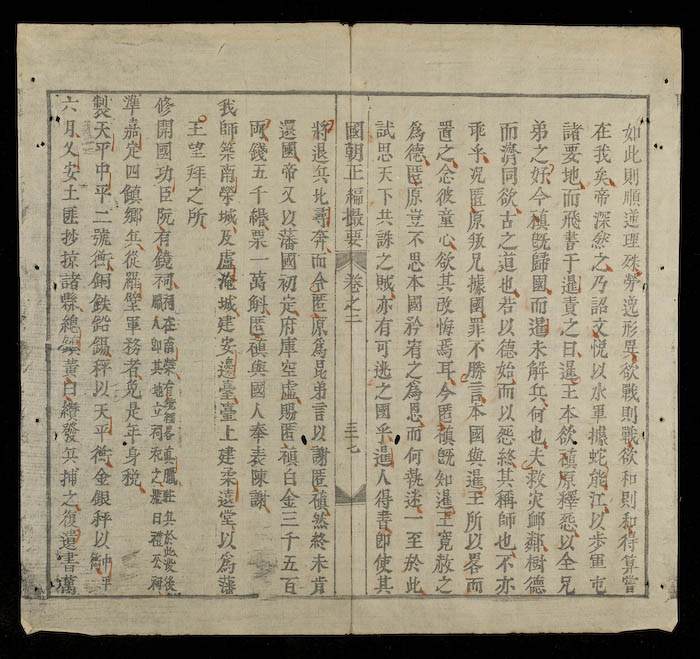 如此則順逆理殊勞逸形異欲戰則戰欲和則和得算嘗
在我矣帝深然之乃詔文悅以水軍據蛇能江以步軍屯
諸要地而飛書于暹責之曰暹王本欲禛原釋怨以全兄
弟之好今禛既歸國而暹未解兵何也夫救灾邮鄰樹德
而濟同欲古之道也若以德始而以怨終其稱師也不亦
乖乎况匿原叛兄據國罪不勝言本國與暹王所以畧而
置之念彼童心欲其改悔焉耳今匿禛既知暹王寬赦之
為德匿原豈不思本國矜宥之為恩而何執迷一至於此
試思天下共誅之賊亦有可逃之國乎暹人得書即使其
國朝正編撮要 卷之二 三十七
將退兵比尋奔而令匿原爲昆弟言以謝匿禛然終未肯
還國帝又以藩國初定府庫空虛賜匿禛白金三千五百
兩錢五千緡粟一萬斛匿禛與國人奉表陳謝
我師築南榮城及盧淹城建安邊臺臺上建柔遠堂以為藩
王望拜之所
修開國功臣阮有鏡祠祠在南榮有鏡經畧真臘駐兵於此没後
臘人即其地立祠祀之號曰禮公祠
準嘉定四鎮鄉兵從羅壁軍務者免是年身税
製天平中平二號衡銅鉄鉛錫秤以天平衡金銀秤以中平
衡
六月乂安土匪抄掠諸縣總鎮黃曰纘發兵捕之復遺書萬